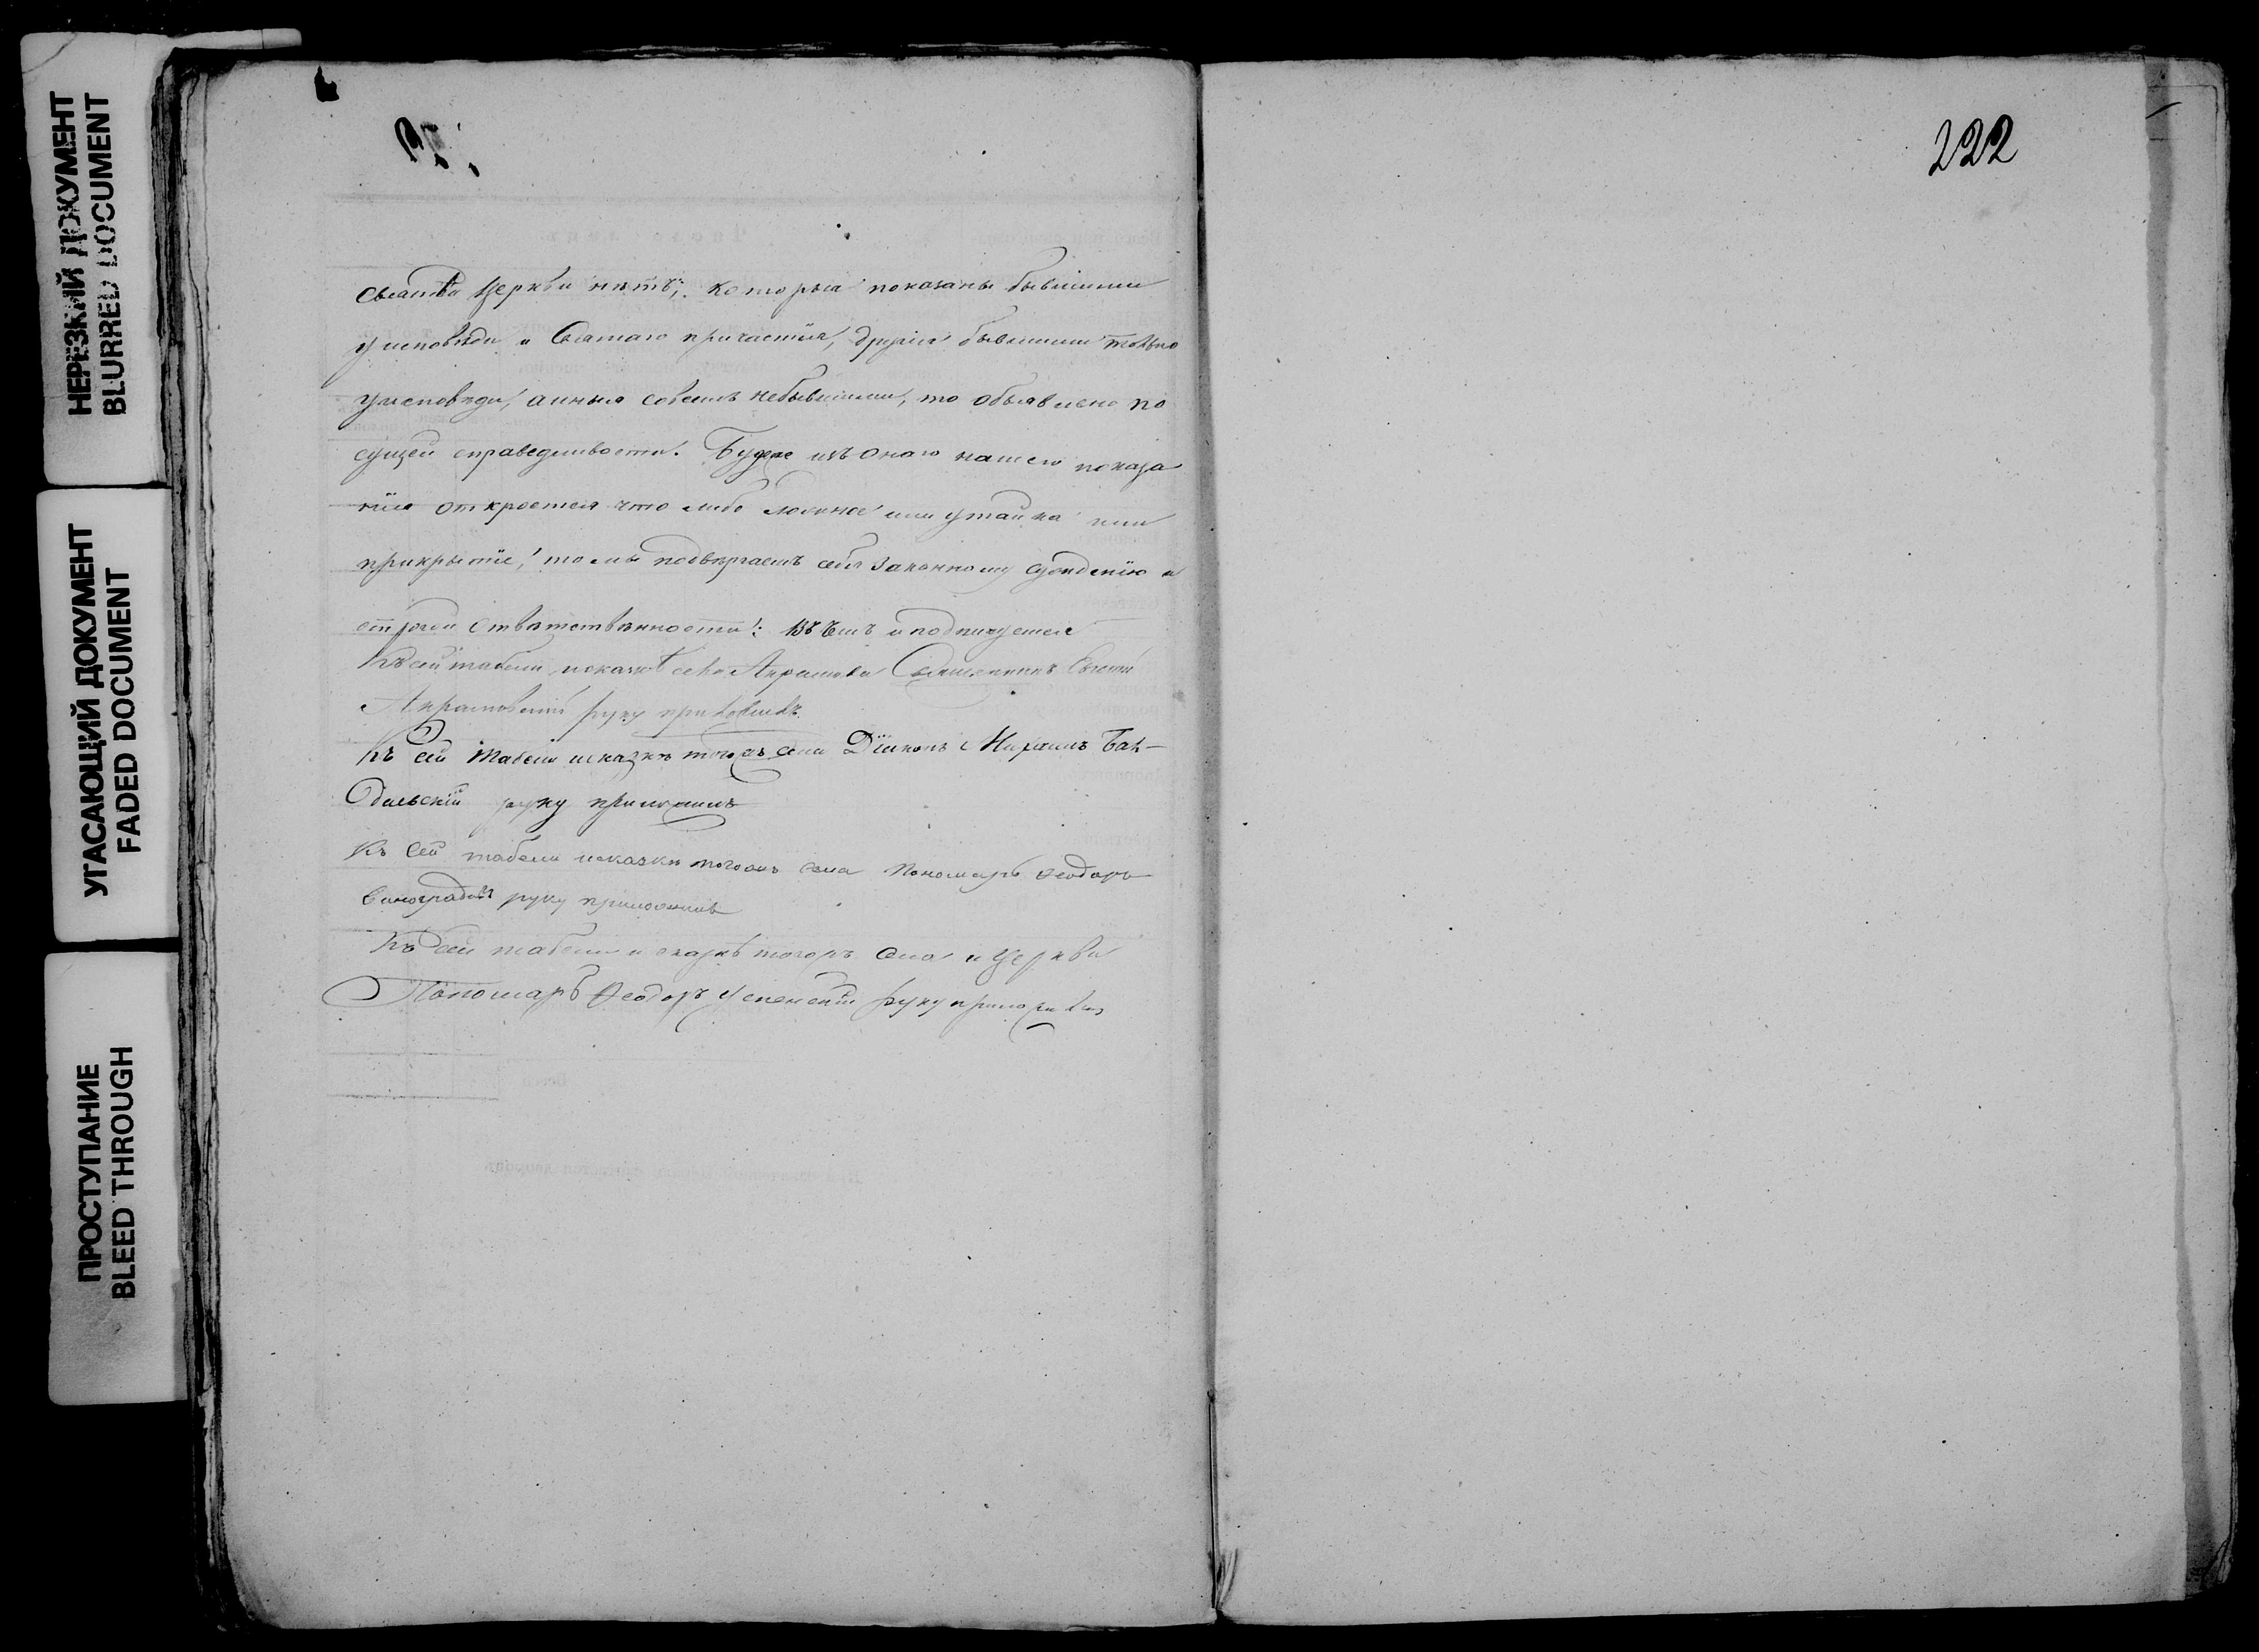 НЕРЕЗКИЙ ДОКУМЕНТ
BLURRED DOCUMENT
УГАСАЮЩИЙ ДОКУМЕНТ
FADED DOCUMENT
ПРОСТУПАНИЕ
BLEED THROUGH
222
Церкви нѣтъ; которыя показаны бывшими
у исповѣди и Святаго причастія, другія бывшими только
у исповѣди, а иныя совсемъ небывшими, то объявлено по
сущей справедливости. Буде изъ онаго нашего показа
нія откроется что либо ложное или утайка или
прикрытіе, то мы подвѣргаемъ себя законному сужденію и
строгой отвѣтственности: въ чемъ и подпишуемся
Къ сей табели и сказкѣ села Священникъ
руку приложилъ
Къ сей табели и сказкѣ тогожъ села Діяконъ Михаилъ
руку приложилъ
Къ сей табели и сказкѣ тогожъ села Пономарь Ѳеодоръ
Виноградовъ руку приложилъ
Къ сей табели и сказкѣ тогожъ села и Церкви
Пономарь Ѳеодоръ Успенскій руку приложилъ